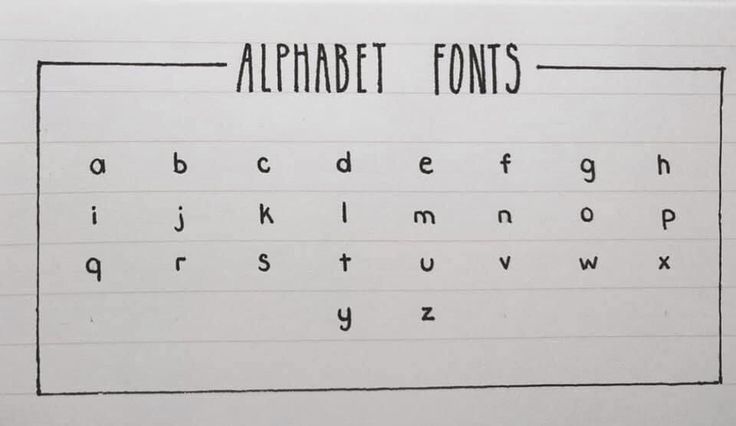 ALPHABET FONTS
a b c d e f g h
i j k l m n o p
q r s t u v w x
y z